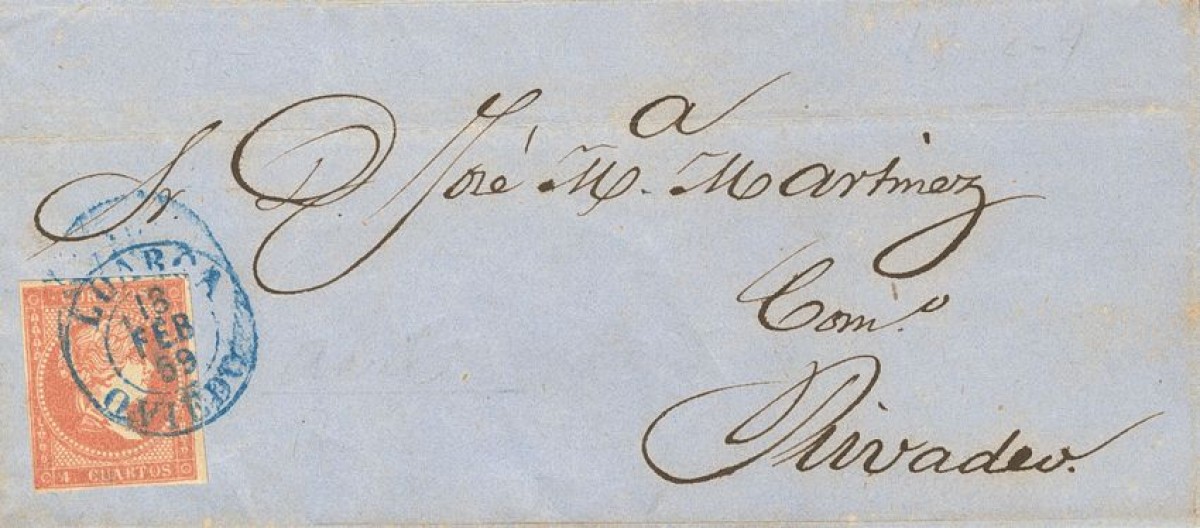 Sr. D. José M.a Martinez
Com.o
Rivadeo.
LUARCA
18
FEB
59
OVIEDO
CORREOS
4 CUARTOS